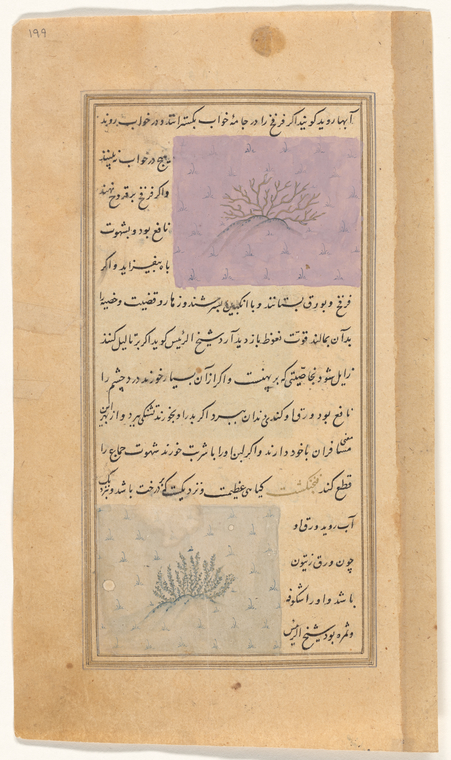 ۱۹۹
آبها روید کویند اکر فرفخ را در جامهٔ خواب بکسترانند و در خواب روند
هیچ در خواب نه بینند
واکر فرفخ بر قروح نهند
نافع بود و بشهوت
باه بیفزاید و اکر
فرفخ و بورق بستانند و با انکبین بسرشند و زهار و قضیب و خصیه را
بدان بمالند قوت نعوظ باز دید آرد شیخ الرئیس کوید اکر بر ثالیل کنند
زایل شود بخاصیتی که بر پهنست و اکر از آن بسیار خورند درد چشم را
نافع بود و رق او کندی دندان ببرد اکر بدر او بخورند تشنکی ببرد و از بهر این
معنی مسافران با خود دارند و اکر لبن او را با شربت خورند شهوت جماع را
قطع کند فنجنکشت کیاهی عظیمست و نزدیکست که درخت باشد و نزدیک
آب روید ورق او
چون ورق زیتون
باشد و او را شکوفه
و ثمره بود شیخ الرئیس